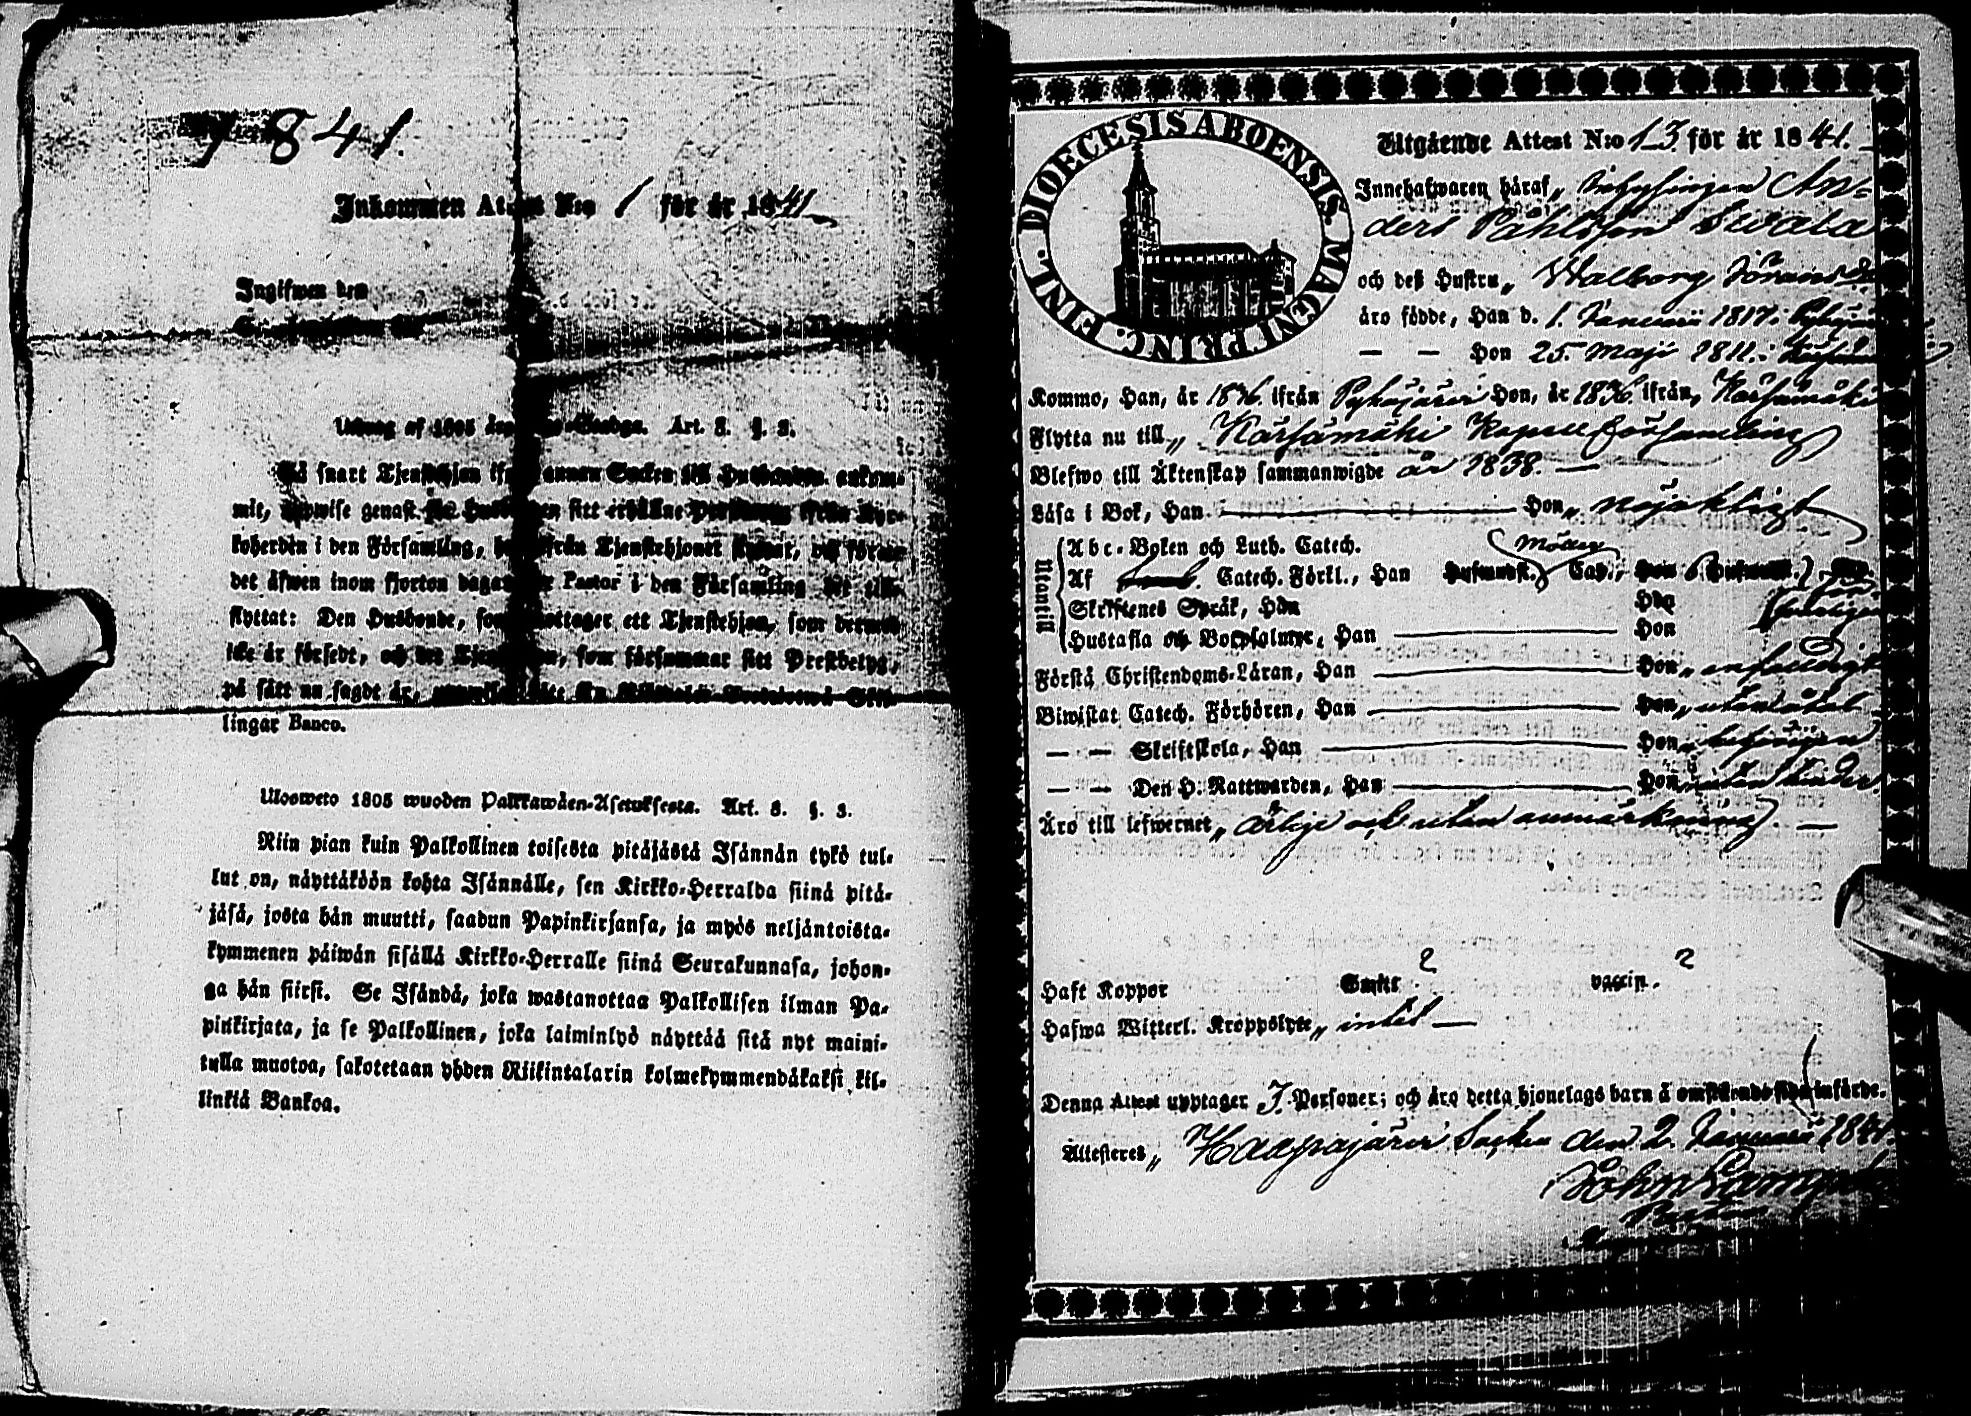 1841.
Inkommen Attest N:o 1 för år 1841
Ingifwen den
Utdrag af 1805 års Art. 8. §. 3.
Så snart Tjenstehjon ifrån annan Socken till Husbonden ankom-
mit, uppwise genast för Husbonden sitt erhållne Prestbetyg ifrån Kyr-
koherden i den Församling, hwarifrån Tjenstehjonet flyttat, och förete
det äfwen inom fjorton dagar för Pastor i den Församling det till-
flyttat: Den Husbonde, som mottager ett Tjenstehjon, som dermed
icke är försedt, och det Tjenstehjon, som försummar sitt Prestbetyg,
på sätt nu sagdt är,
lingar Banco.
Ulosweto 1805 wuoden Palkkawäen-Asetuksesta. Art. 8. §. 3.
Niin pian kuin Palkollinen toisesta pitäjästä Isännän tykö tul-
lut on, näyttäköön kohta Isännälle, sen Kirkko-Herralda siinä pitä-
jäsä, josta hän muutti, saadun Papinkirjansa, ja myös neljäntoista-
kymmenen päiwän sisällä Kirkko-Herralle siinä Seurakunnasa, johon-
ga hän siirsi. Se Isändä, joka wastanottaa Palkollisen ilman Pa-
pinkirjata, ja se Palkollinen, joka laiminlyö näyttää sitä nyt maini-
tulla muotoa, sakotetaan yhden Riikintalarin kolmekymmendäkaksi kil-
linkiä Bankoa.
DIOECESIS ABOENSIS. MAGNI PRINC. FINL.
Utgående Attest N:o 13 för år 1841.
Innehafwaren häraf, Inhysingen An-
ders Påhlsson Sivala
och deß Hustru, Walborg Jöransdr
äro födde, Han d. 1. Januarii 1817.
— — Hon 25. Maji 1811.
Kommo, Han, år 1836 ifrån Pyhäjärvi Hon, år 1836 ifrån, Kärsämäki
Flytta nu till, Kärsämäki Kapell församling
Blefwo till Äktenskap sammanwigde år 1838.
Läsa i Bok, Han — Hon, nöjaktligt
Utantill
Abc-Boken och Luth. Catech.
Af Catech. Förkl., Han Cap.,
Skriftenes Språk, Han Hon
Hustafla och Botpsalmer, Han — Hon
Förstå Christendoms-Läran, Han — Hon,
Biwistat Catech. Förhören, Han — Hon,
— — Skriftskola, Han — Hon,
— — Den H. Nattwarden, Han — Hon, utan hinder.
Äro till lefwernet, ärlige och utan anmärkning.
Haft Koppor Smitt ? vaccin. ?
Hafwa Witterl. Kroppslyte, intet
Denna Attest upptager 3. Personer; och äro detta hjonelags barn å omstående sida införde.
Attesteres, Haapajärvi Socken den 2. Januarii 1841.